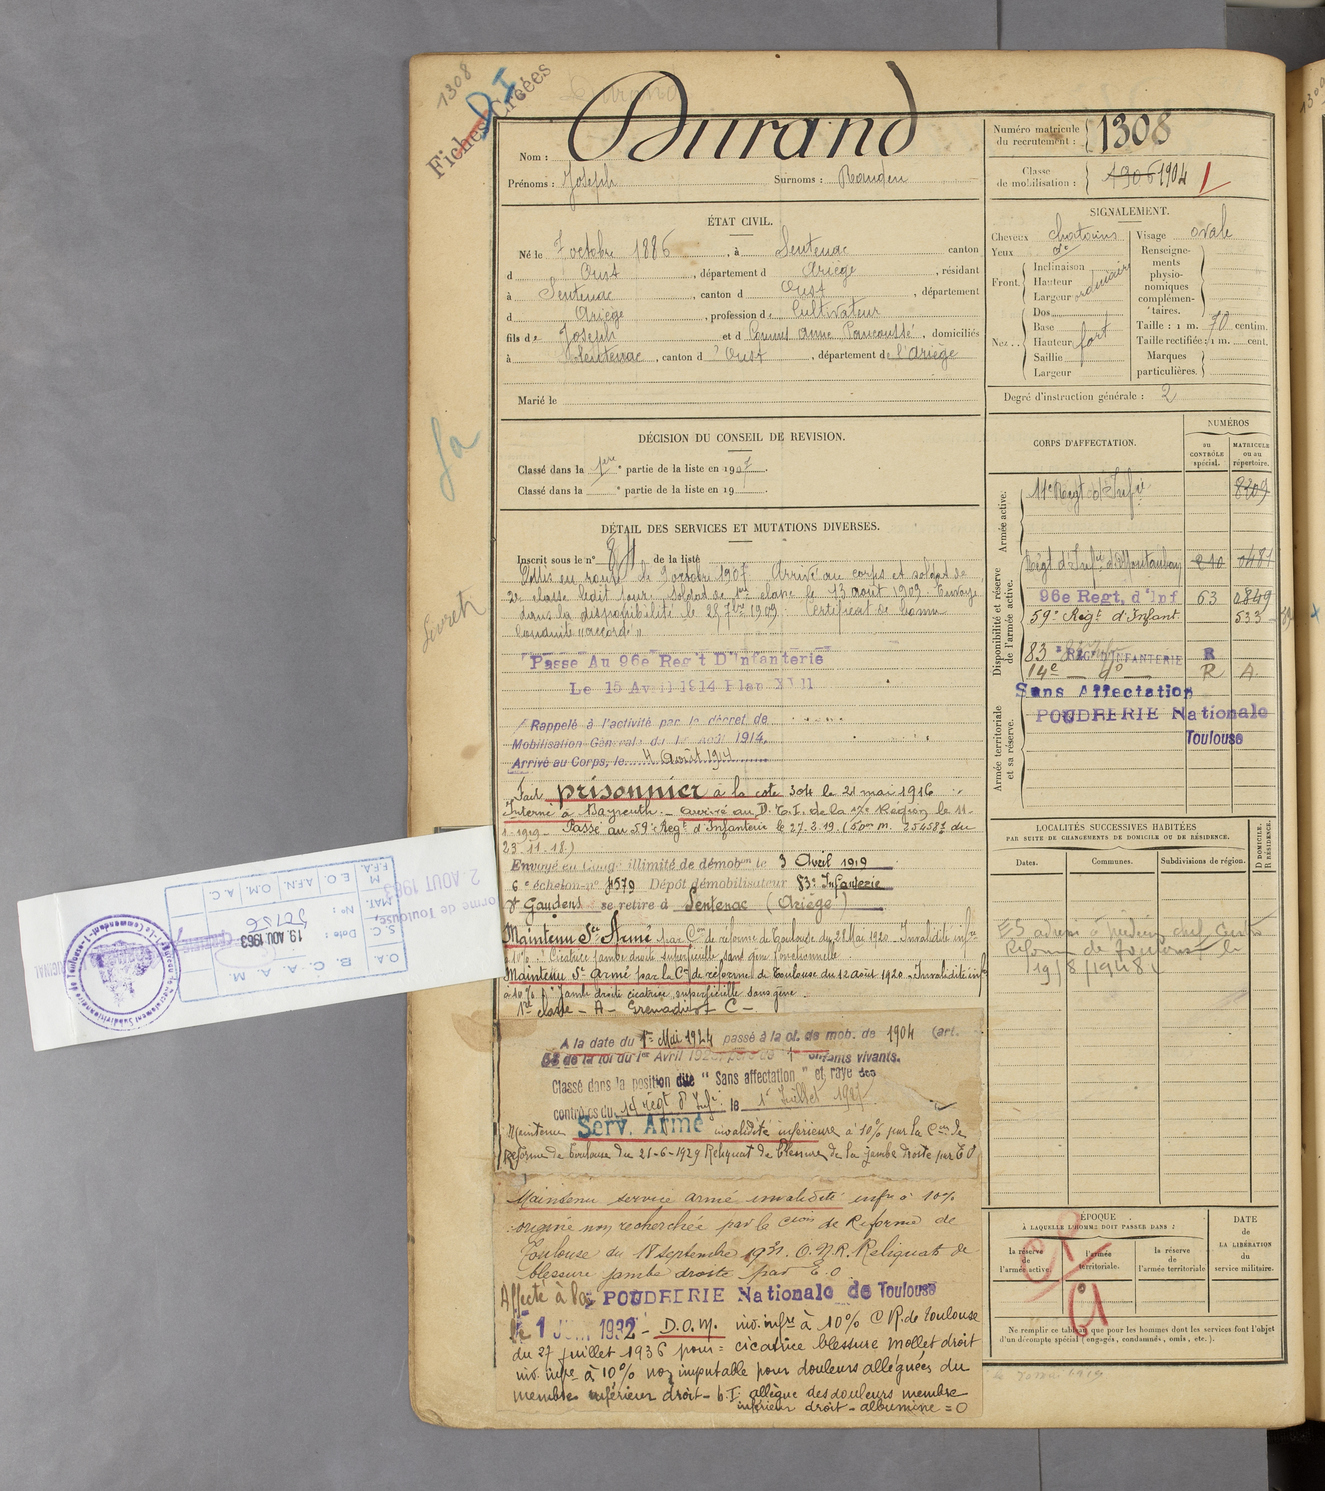 1308
Fiches Créées
Durand
Nom :
Prénoms : Joseph Surnoms : Roudeu
Numéro matricule du recrutement : 1308
Classe de mobilisation : 1906 1904
ÉTAT CIVIL.
Né le 7 octobre 1886, à Sentenac canton
d Oust, département d Ariège, résidant
à Sentenac, canton d Oust, département
d Ariège, profession de Cultivateur
fils de Joseph et d Anne, domiciliés
à Sentenac, canton d'Oust, département de l'Ariège
Marié le
SIGNALEMENT.
Cheveux chatains
Yeux do
Front. Inclinaison Hauteur Largeur ordinaire
Nez.. Dos Base Hauteur Saillie Largeur fort
Visage ovale
Renseignements physionomiques complémentaires.
Taille : 1 m. 70 centim.
Taille rectifiée : 1 m. cent.
Marques particulières.
Degré d'instruction générale : 2
DÉCISION DU CONSEIL DE REVISION.
Classé dans la 1ère partie de la liste en 1907.
Classé dans la e partie de la liste en 19
DÉTAIL DES SERVICES ET MUTATIONS DIVERSES.
Inscrit sous le n° de la liste
Mis en route le 9 octobre 1907 Arrivé au corps et soldat de
2e classe ledit jour. Soldat de 1re classe le 13 août 1909 Envoyé
dans la disponibilité le 28 7bre 1909. Certificat de bonne
conduite "accordé"
Passe Au 96e Reg't D'Infanterie
Le 15 Avril 1914 Plan XVII
Rappelé à l'activité par le décret de
Mobilisation Générale du 1er Août 1914.
Arrivé au Corps, le 4 Août 1914
Fait prisonnier à la cote 304 le 21 mai 1916
Interné à Bayreuth. - arrivé au D.T.I. de la 17e Région le 11-
1-1919 - Passé au 59e Regt d'Infanterie le 27.2.19. (50m m. 25458 du
23-11-18.)
Envoyé en Congé illimité de démobon le 3 Avril 1919
6e échelon n° 4579 Dépôt démobilisateur 83e Infanterie
St Gaudens se retire à Sentenac (Ariège)
Maintenu Sce Armé par Con de réforme de Toulouse du 28 Mai 1920. Invalidité infre
à 10% : Cicatrice jambe droite superficielle sans gêne fonctionnelle
Maintenu Sce armé par la Con de réforme de Toulouse du 12 août 1920. Invalidité inf
à 10% Jambe droite cicatrice superficielle sans gêne
1re classe - A - Grenadier C -
A la date du 1er Mai 1924 passé à la cl. de mob. de 1904 (art.
58 de la loi du 1er Avril 1923, père de 1 enfants vivants.
Classé dans la position dite "Sans affectation" et rayé des
contrôles du 14 régt d'Infie le 1er Juillet 1927
Maintenu Serv. Armé invalidité inférieure à 10% par la Con de
Réforme de Toulouse du 21-6-1929 Reliquat de blessure de la jambe droite par E O
Maintenu service armé invalidité infre à 10%
origine non recherchée par la Cion de Réforme de
Toulouse du 18 septembre 1931. O.N.R. Reliquat de
blessure jambe droite par E.O.
Affecté à POUDRERIE Nationale de Toulouse
le 1 JUIN 1932 - D.O.M. inv. infre à 10% C R. de Toulouse
du 27 juillet 1936 pour : cicatrice blessure mollet droit
inv. infre à 10% non imputable pour douleurs alléguées du
membre inférieur droit - b.I. allègue des douleurs membre
inférieur droit - albumine = 0
CORPS D'AFFECTATION.
NUMÉROS
au CONTRÔLE spécial.
MATRICULE ou au répertoire.
Armée active.
11e Regt d'Infie 8209
Disponibilité et réserve de l'armée active.
Régt d'Infie de Montauban 210 0481
96e Regt, d'Inf 63 0849
59e Regt d'Infant. 533
83e REGt D'INFANTERIE R
14e - do - R A
Sans Affectation
POUDRERIE Nationale
Toulouse
Armée territoriale et sa réserve.
LOCALITÉS SUCCESSIVES HABITÉES
PAR SUITE DE CHANGEMENTS DE DOMICILE OU DE RÉSIDENCE.
Dates. Communes. Subdivisions de région.
D DOMICILE. R RÉSIDENCE.
ES adressé à Médecin chef Centre
Réforme de Toulouse le
19/8/1948
ÉPOQUE
À LAQUELLE L'HOMME DOIT PASSER DANS :
la réserve de l'armée active.
l'armée territoriale.
la réserve de l'armée territoriale
DATE de LA LIBÉRATION du service militaire.
Ne remplir ce tableau que pour les hommes dont les services font l'objet
d'un décompte spécial (engagés, condamnés, omis, etc.).
B. C. A. A. M.
Date : 19 AOU 1963
N° : 50756
O.A. S.C. MAT. M F.F.A.
E.O. A.F.N. O.M. A.C.
2 AOUT 1963